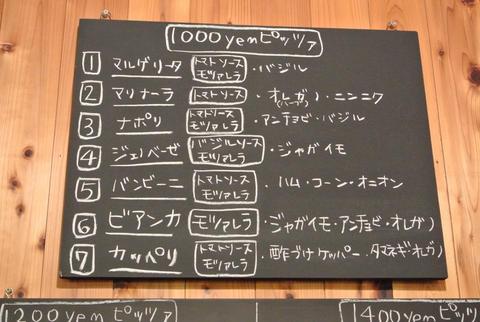 1000yenピッツァ
1 マルゲリータ トマトソース モツァレラ ・バジル
2 マリナーラ トマトソース ・オレガノ(ハーブ)・ニンニク
3 ナポリ トマトソース モツァレラ ・アンチョビ・バジル
4 ジェノベーゼ バジルソース モツァレラ ・ジャガイモ
5 バンビーニ トマトソース モツァレラ ・ハム・コーン・オニオン
6 ビアンカ モツァレラ ・ジャガイモ・アンチョビ・オレガノ
7 カッペリ トマトソース モツァレラ ・酢づけケッパー・タマネギ・オレガノ
1200yenピッツァ 1400yenピッツァ